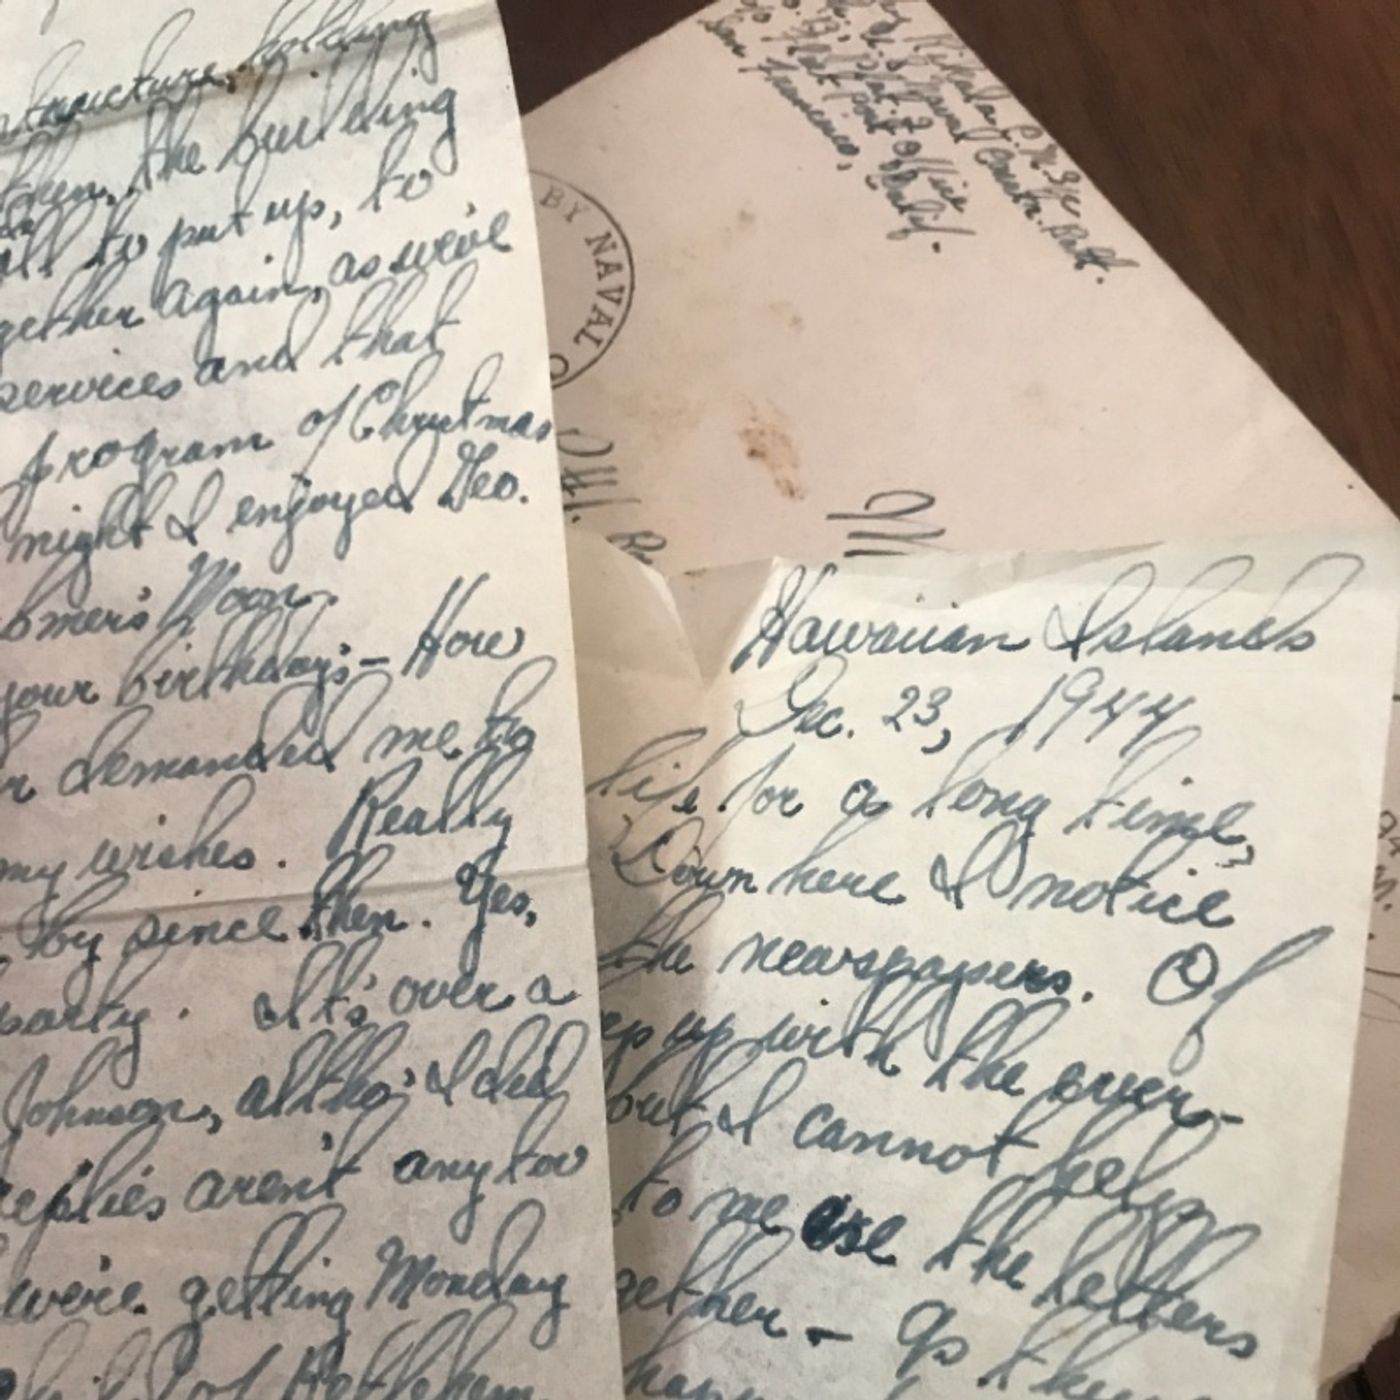 structure, holding
then, the building
all to put up, to
gether again, as we've
services and that
program of Christmas
night I enjoyed Geo.
omer's Moon.
your birthdays - How
demanded me to
my wishes. Really
by since then. Yes,
party. It's over a
Johnson, altho' I did
replies aren't any too
we're getting Monday
of Bethlehem
San Francisco, Calif.
BY NAVAL C
Hawaiian Islands
Dec. 23, 1944
life for a long time,
Down here I notice
the newspapers. Of
ep up with the over-
but I cannot help
to me are the letters
gether - As they
happ